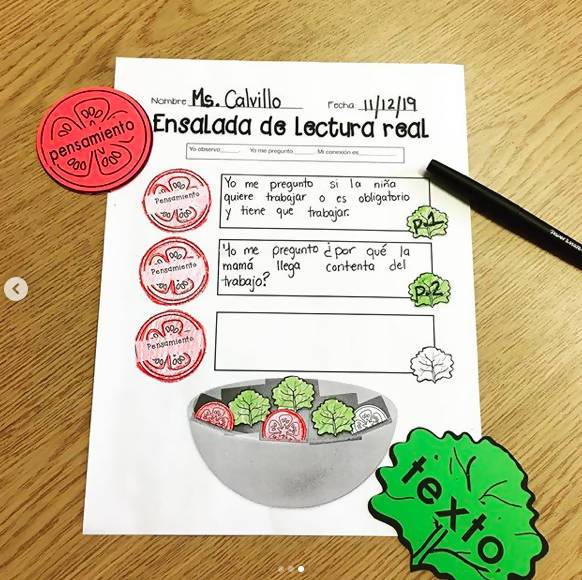 Nombre Ms. Calvillo Fecha 11/12/19
Ensalada de lectura real
Yo observo______. Yo me pregunto______ Mi conexión es______
pensamiento
Pensamiento
Yo me pregunto si la niña
quiere trabajar o es obligatorio
y tiene que trabajar.
p.1
Pensamiento
Yo me pregunto ¿por qué la
mamá llega contenta del
trabajo?
p.2
Pensamiento
texto